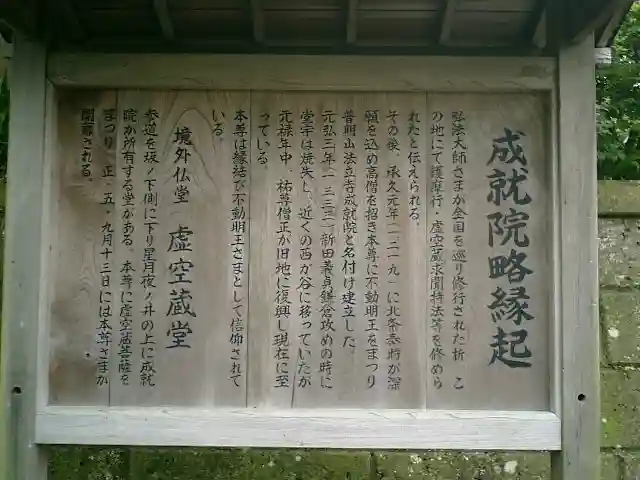 成就院略縁起
弘法大師さまが全国を巡り修行された折 こ
の地にて護摩行・虚空蔵求聞持法等を修めら
れたと伝えられる。
その後、承久元年(一二一九)に北条泰時が深
願を込め高僧を招き本尊に不動明王をまつり
普明山法立寺成就院と名付け建立した。
元弘三年(一三三三)新田義貞鎌倉攻めの時に
堂宇は焼失し、近くの西が谷に移っていたが
元禄年中、祐尊僧正が旧地に復興し現在に至
っている。
本尊は縁結び不動明王さまとして信仰されて
いる。
境外仏堂 虚空蔵堂
参道を坂ノ下側に下り星月夜ノ井の上に成就
院が所有する堂がある。本尊に虚空蔵菩薩を
まつり、正・五・九月十三日には本尊さまが
開帳される。